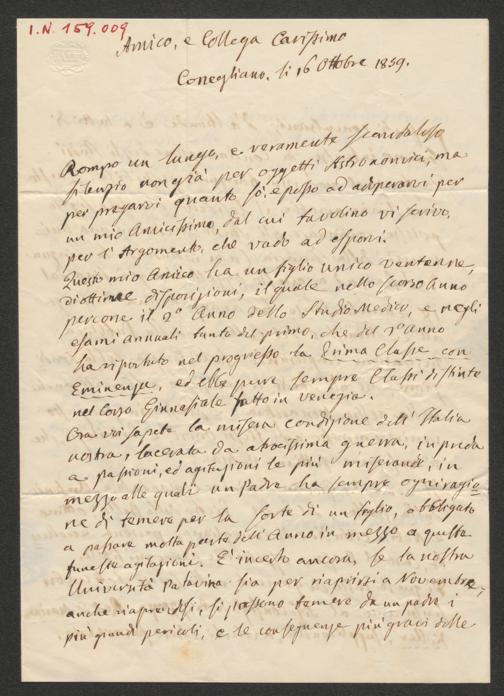 I.N. 159.009
Amico, e Collega Carissimo
Conegliano, li 16 Ottobre 1859.
Rompo un lungo, e veramente scandaloso
silenzio non già per oggetti Astronomici, ma
per pregarvi quanto so, e posso ad adoperarvi per
un mio Amicissimo, dal cui tavolino vi scrivo,
per l'Argomento, che vado ad esporvi.
Questo mio Amico ha un figlio unico ventenne,
di ottime disposizioni, il quale nello scorso Anno
percorse il 2º Anno dello Studio Medico, e negli
esami annuali tanto del primo, che del 2º anno
ha riportato nel progresso la Prima Classe con
Eminenza, ed ebbe pure sempre Classi distinte
nel Corso Ginnasiale fatto in Venezia.
Ora voi sapete la misera condizione dell'Italia
nostra, lacerata da atrocissima guerra, in preda
a passioni, ed agitazioni le più miserande, in
mezzo alle quali un Padre ha sempre ogni ragio
ne di temere per la sorte di un figlio, obbligato
a passare molta parte dell'Anno in mezzo a queste
funeste agitazioni. È incerto ancora, se la nostra
Università Patavina sia per riaprirsi a Novembre,
anche riaprendosi, si possono temere da un padre i
più grandi pericoli, e le conseguenze più gravi delle